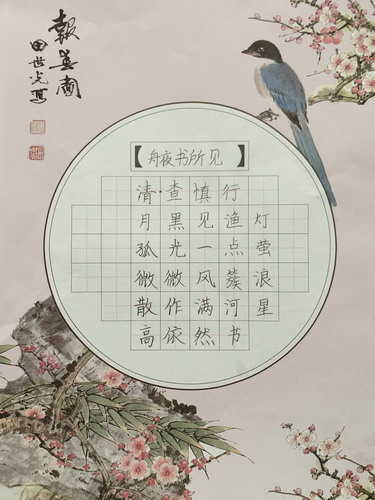 報喜圖
田世光寫
【舟夜书所见】
清·查慎行
月黑见渔灯
孤光一点萤
微微风簇浪
散作满河星
高依然书